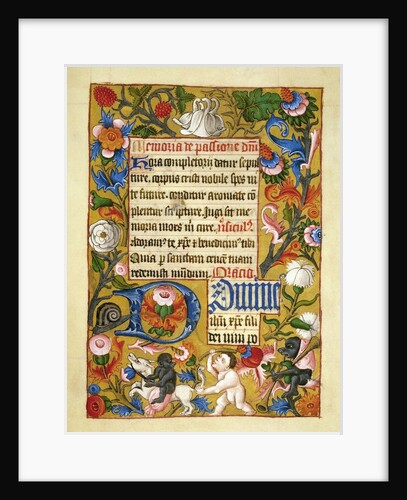 Memoria de passione dñi
Hora completorij datur sepul
ture. corpus cristi nobile spes vi
te future. conditur aromate cõ
plentur scripture. Jugi sit me
moria mors in cure. ṽsiculꝰ
Adoramꝰ te xp̃e et benedicimꝰ tibi
Quia p sanctam crucẽ tuam
redemisti mundum. Oracio
Domine
ihũ xp̃e fili
dei viui po